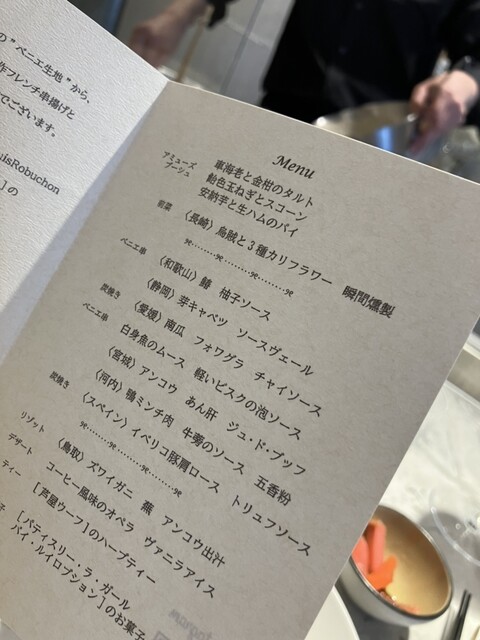 の"ベニエ生地"から、
作フレンチ串揚げと
でございます。
uisRobuchon
]の
Menu
アミューズ
ブーシュ
車海老と金柑のタルト
飴色玉ねぎとスコーン
安納芋と生ハムのパイ
前菜 〈長崎〉烏賊と3種カリフラワー 瞬間燻製
ベニエ串 〈和歌山〉鰆 柚子ソース
〈静岡〉芽キャベツ ソースヴェール
炭焼き 〈愛媛〉南瓜 フォワグラ チャイソース
ベニエ串 白身魚のムース 軽いビスクの泡ソース
〈宮城〉アンコウ あん肝 ジュ・ド・ブッフ
〈河内〉鴨ミンチ肉 牛蒡のソース 五香粉
炭焼き 〈スペイン〉イベリコ豚肩ロース トリュフソース
リゾット 〈鳥取〉ズワイガニ 蕪 アンコウ出汁
デザート コーヒー風味のオペラ ヴァニラアイス
ティー [芦屋ウーフ]のハーブティー
子 [パティスリー・ラ・ガール
バイ・ルイロブション]のお菓子